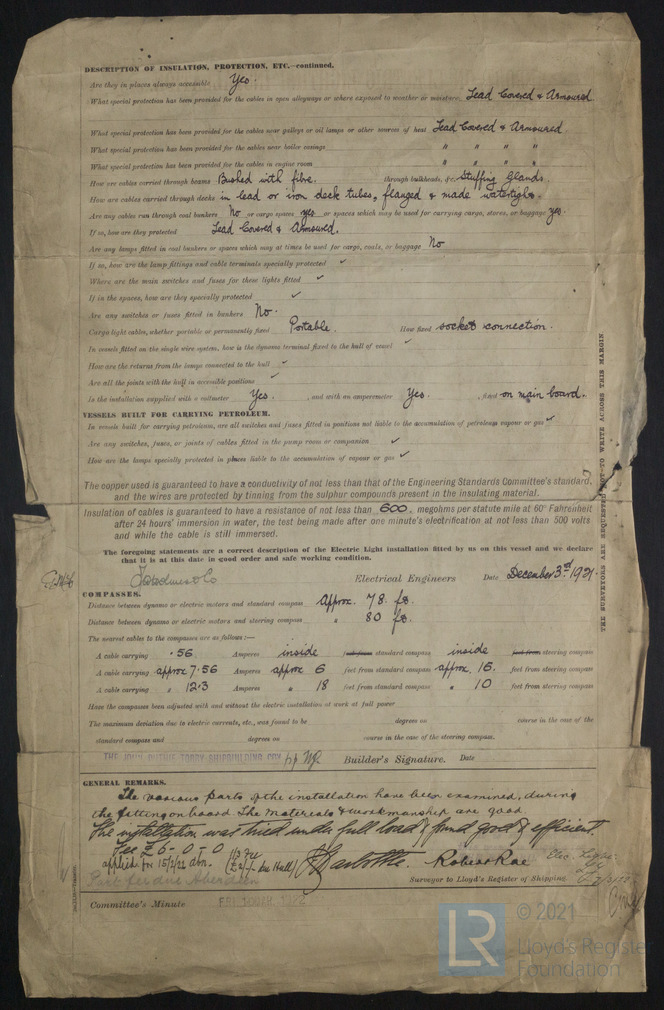 DESCRIPTION OF INSULATION, PROTECTION, ETC.—continued.
Are they in places always accessible Yes.
What special protection has been provided for the cables in open alleyways or where exposed to weather or moisture Lead Covered & Armoured.
What special protection has been provided for the cables near galleys or oil lamps or other sources of heat Lead Covered & Armoured
What special protection has been provided for the cables near boiler casings " " " "
What special protection has been provided for the cables in engine room " " " "
How are cables carried through beams Bushed with fibre. through bulkheads, &c. Stuffing Glands.
How are cables carried through decks in lead or iron deck tubes, flanged & made watertight.
Are any cables run through coal bunkers No or cargo spaces yes or spaces which may be used for carrying cargo, stores, or baggage yes.
If so, how are they protected Lead Covered & Armoured.
Are any lamps fitted in coal bunkers or spaces which may at times be used for cargo, coals, or baggage No
If so, how are the lamp fittings and cable terminals specially protected ✓
Where are the main switches and fuses for these lights fitted ✓
If in the spaces, how are they specially protected ✓
Are any switches or fuses fitted in bunkers No.
Cargo light cables, whether portable or permanently fixed Portable. How fixed socket connection.
In vessels fitted on the single wire system, how is the dynamo terminal fixed to the hull of vessel ✓
How are the returns from the lamps connected to the hull ✓
Are all the joints with the hull in accessible positions ✓
Is the installation supplied with a voltmeter Yes. , and with an amperemeter Yes. , fixed on main board.
VESSELS BUILT FOR CARRYING PETROLEUM.
In vessels built for carrying petroleum, are all switches and fuses fitted in positions not liable to the accumulation of petroleum vapour or gas ✓
Are any switches, fuses, or joints of cables fitted in the pump room or companion ✓
How are the lamps specially protected in places liable to the accumulation of vapour or gas ✓
The copper used is guaranteed to have a conductivity of not less than that of the Engineering Standards Committee's standard,
and the wires are protected by tinning from the sulphur compounds present in the insulating material.
Insulation of cables is guaranteed to have a resistance of not less than 600 megohms per statute mile at 60° Fahrenheit
after 24 hours' immersion in water, the test being made after one minute's electrification at not less than 500 volts
and while the cable is still immersed.
The foregoing statements are a correct description of the Electric Light installation fitted by us on this vessel and we declare
that it is at this date in good order and safe working condition.
Electrical Engineers Date December 3rd 1921.
COMPASSES.
Distance between dynamo or electric motors and standard compass Approx. 78 ft.
Distance between dynamo or electric motors and steering compass " 80 ft.
The nearest cables to the compasses are as follows:—
A cable carrying .56 Amperes inside feet from standard compass inside feet from steering compass
A cable carrying approx 7.56 Amperes approx 6 feet from standard compass approx. 15. feet from steering compass
A cable carrying " 12.3 Amperes " 18 feet from standard compass " 10 feet from steering compass
Have the compasses been adjusted with and without the electric installation at work at full power
The maximum deviation due to electric currents, etc., was found to be degrees on course in the case of the
standard compass and degrees on course in the case of the steering compass.
THE JOHN DUTHIE TORRY SHIPBUILDING COY Builder's Signature. Date
GENERAL REMARKS.
The various parts of the installation have been examined, during
the fitting on board. The materials & workmanship are good
The installation was tried under full load & found good & efficient.
Fee £ 5-0-0
applied for 15/2/22
Robert Rae
Surveyor to Lloyd's Register of Shipping
Port fee due Aberdeen
Committee's Minute
THE SURVEYORS ARE REQUESTED NOT TO WRITE ACROSS THIS MARGIN
LR
© 2021
Lloyd's Register
Foundation